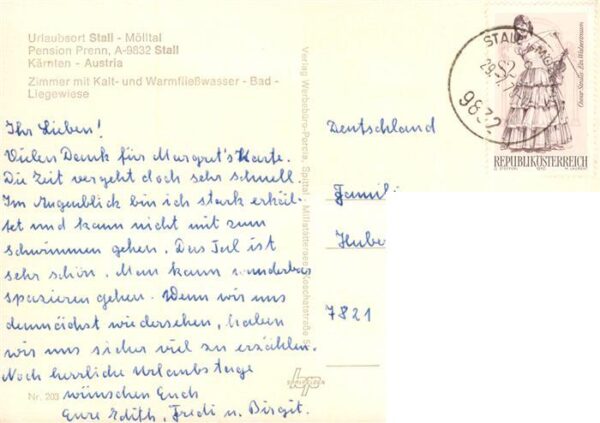 Urlaubsort Stall - Mölltal
Pension Prenn, A-9832 Stall
Kärnten - Austria
Zimmer mit Kalt- und Warmfließwasser - Bad -
Liegewiese
Ihr Lieben!
Vielen Dank für Margret's Karte.
Die Zeit vergeht doch sehr schnell
Im Augenblick bin ich stark erkäl-
tet und kann nicht mit zum
schwimmen gehen. Das Tal ist
sehr schön. Man kann wunderbar
spazieren gehen. Wenn wir uns
demnächst wiedersehen, haben
wir uns sicher viel zu erzählen.
Noch herrliche Urlaubstage
wünschen Euch
Eure Edith, Fredi u. Birgit.
Nr. 203
Verlag Werbebüro-Percia, Spittal, Millstätterseee
Deutschland
Famili
Hube
7821
STALL
9832
Oscar Straus: Ein Walzertraum
REPUBLIK ÖSTERREICH